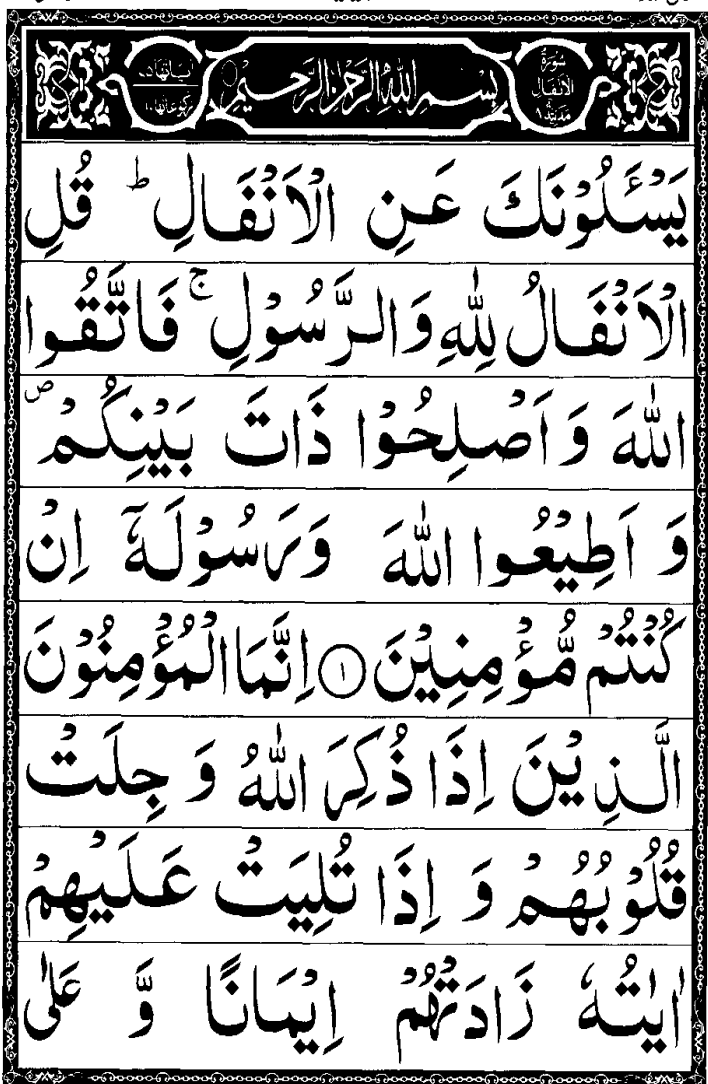 سُوْرَةُ الْاَنْفَالِ مَدَنِيَّةٌ
بِسْمِ اللّٰهِ الرَّحْمٰنِ الرَّحِيْمِ
يَسْـَٔلُوْنَكَ عَنِ الْاَنْفَالِ ؕ قُلِ
الْاَنْفَالُ لِلّٰهِ وَالرَّسُوْلِ ۚ فَاتَّقُوا
اللّٰهَ وَ اَصْلِحُوْا ذَاتَ بَيْنِكُمْ ۪
وَ اَطِيْعُوا اللّٰهَ وَرَسُوْلَهٗۤ اِنْ
كُنْتُمْ مُّؤْمِنِيْنَ ﴿۱﴾ اِنَّمَا الْمُؤْمِنُوْنَ
الَّذِيْنَ اِذَا ذُكِرَ اللّٰهُ وَ جِلَتْ
قُلُوْبُهُمْ وَ اِذَا تُلِيَتْ عَلَيْهِمْ
اٰيٰتُهٗ زَادَتْهُمْ اِيْمَانًا وَّ عَلٰى